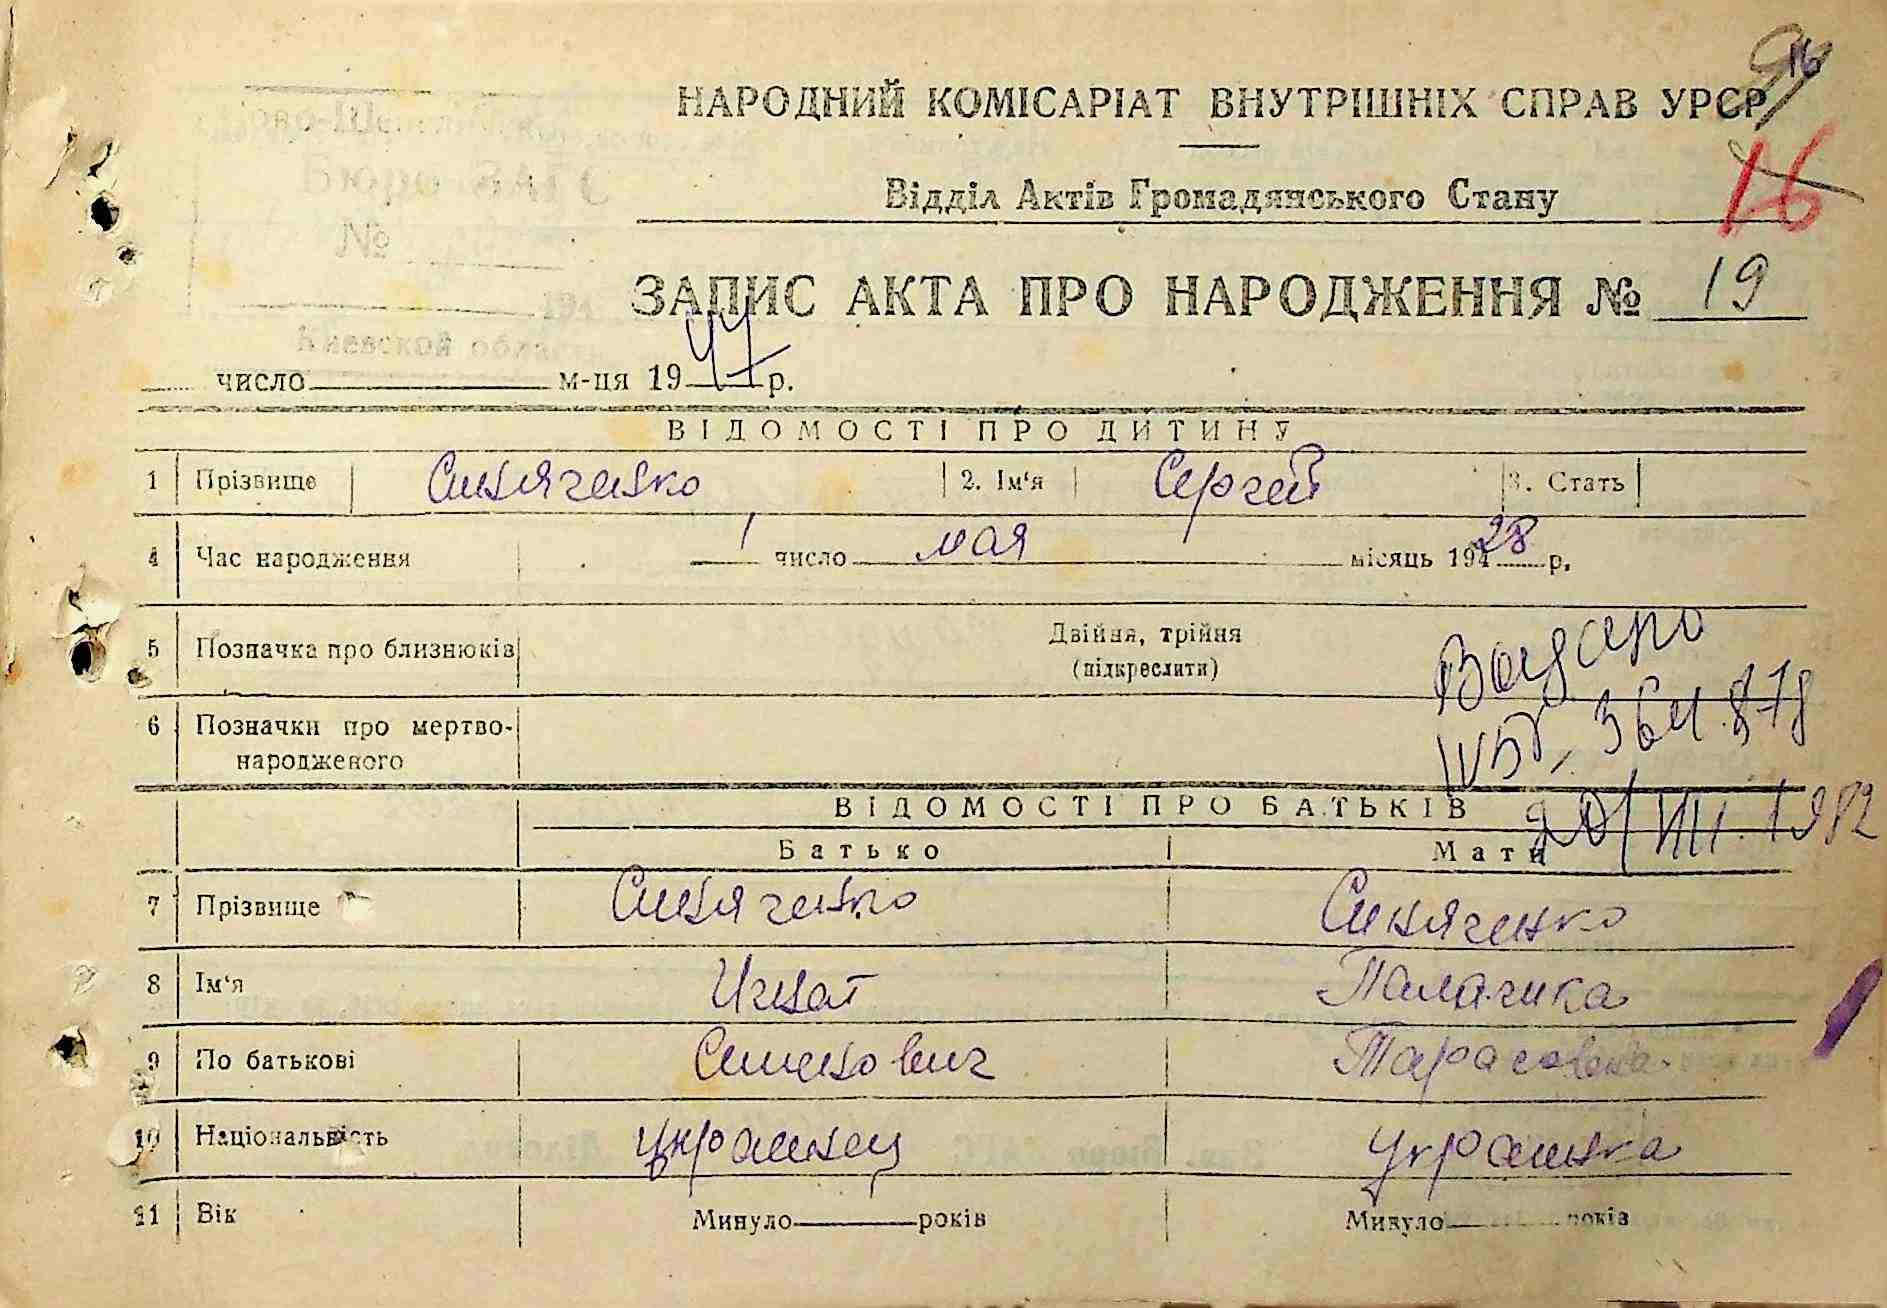 16
НАРОДНИЙ КОМІСАРІАТ ВНУТРІШНІХ СПРАВ УРСР
16
Відділ Актів Громадянського Стану
ЗАПИС АКТА ПРО НАРОДЖЕННЯ № 19
число м-ця 1944 р.
ВІДОМОСТІ ПРО ДИТИНУ
1 Прізвище Синяченко 2. Ім'я Сергей 3. Стать
4 Час народження 1 число мая місяць 19428 р.
5 Позначка про близнюків Двійня, трійня
(підкреслити)
6 Позначки про мертво-
народженого
364878
20/VIII.1982
ВІДОМОСТІ ПРО БАТЬКІВ
Батько Мати
7 Прізвище Синяченко Синяченко
8 Ім'я Игнат Палагика
9 По батькові Семенович Тарасовна
10 Національність украинец украинка
11 Вік Минуло років Минуло років